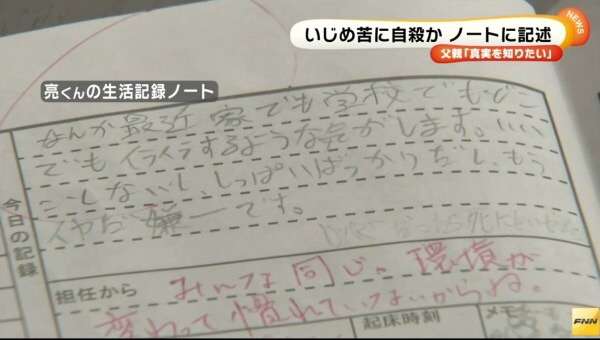 いじめ苦に自殺か ノートに記述
NEWS
父親「真実を知りたい」
亮くんの生活記録ノート
なんか最近家でも学校でもどこ
でもイライラするような気がします。いい
ことしないし、しっぱいばっかりだし、もう
イヤだ嫌ーです。
今日の記録
担任から みんな同じ。環境が
変わって慣れていないからね。
起床時刻
メモ
FNN